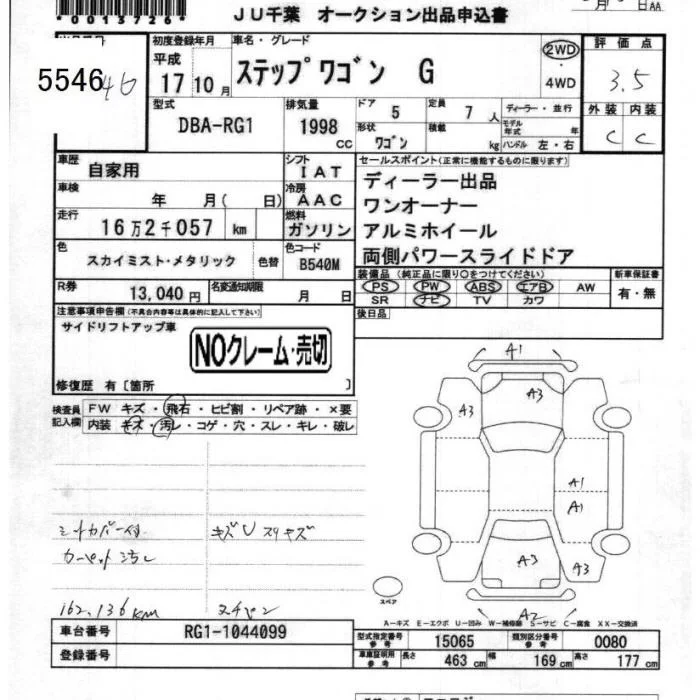 *0013726*
JU千葉 オークション出品申込書
5546 46
初度登録年月 車名・グレード 評価点
平成 17 10月 ステップワゴン G 2WD・4WD 3.5
型式 排気量 ドア 定員 ディーラー・並行 外装 内装
DBA-RG1 1998 CC 5 7人 モデル年式 年 C C
形状 ワゴン 積載 kg ハンドル 左・右
車歴 自家用 シフト IAT セールスポイント(正常に機能するものに限ります)
車検 年 月( 日) 冷房 AAC ディーラー出品
ワンオーナー
走行 16万2千057 km 燃料 ガソリン アルミホイール
色 スカイミスト・メタリック 色替 色コード B540M 両側パワースライドドア
装備品(純正品に限り○をつけてください) 新車保証書
R券 13,040円 名変通知期限 月 日 PS PW ABS エアB AW 有・無
SR ナビ TV カワ
注意事項申告欄(不具合内容等は具体的に記入して下さい) 後日品
サイドリフトアップ車
NOクレーム・売切
修復歴 有〔箇所 〕
検査員記入欄 FW キズ・飛石・ヒビ割・リペア跡・×要
内装 キズ・汚レ・コゲ・穴・スレ・キレ・破レ
A1
A3
A3
A1
A1
A3
A3
A2
シートカバー付 キズU スリキズ
カーペット汚レ
スペア
162,136km
A-キズ E-エクボ U-凹み W-補修跡 S-サビ C-腐食 XX-交換済
車台番号 RG1-1044099 型式指定番号 参考 15065 類別区分番号 参考 0080
登録番号 車庫証明用 参考 長さ 463cm 幅 169cm 高さ 177cm